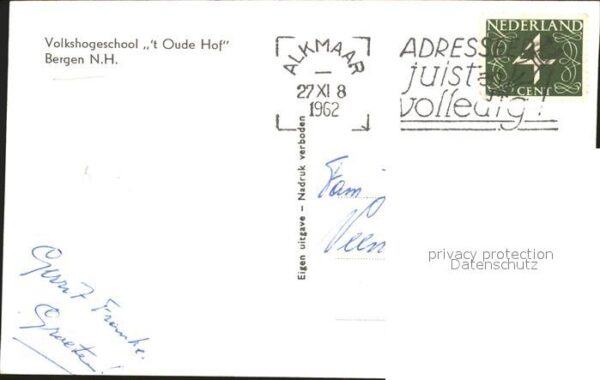 Volkshogeschool „'t Oude Hof"
Bergen N.H.
ALKMAAR
27 XI 8
1962
ADRESSEER
juist en
volledig!
NEDERLAND
4
CENT
Eigen uitgave – Nadruk verboden
Fam
Veen
Gerrit Franke.
Groeten!
privacy protection
Datenschutz